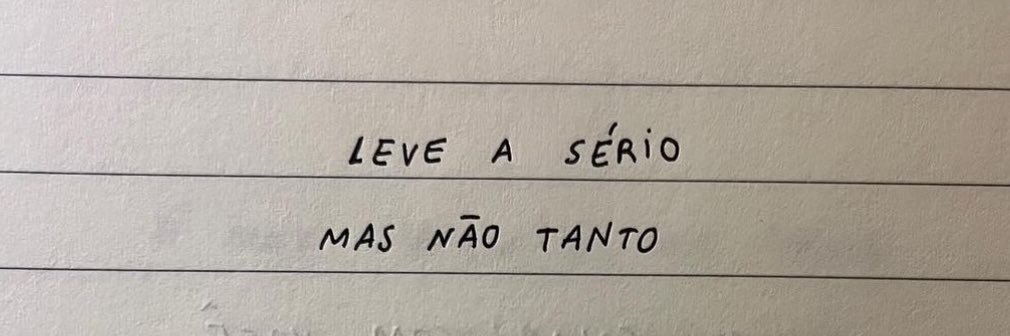 LEVE A SÉRiO
MAS NÃO TANTO